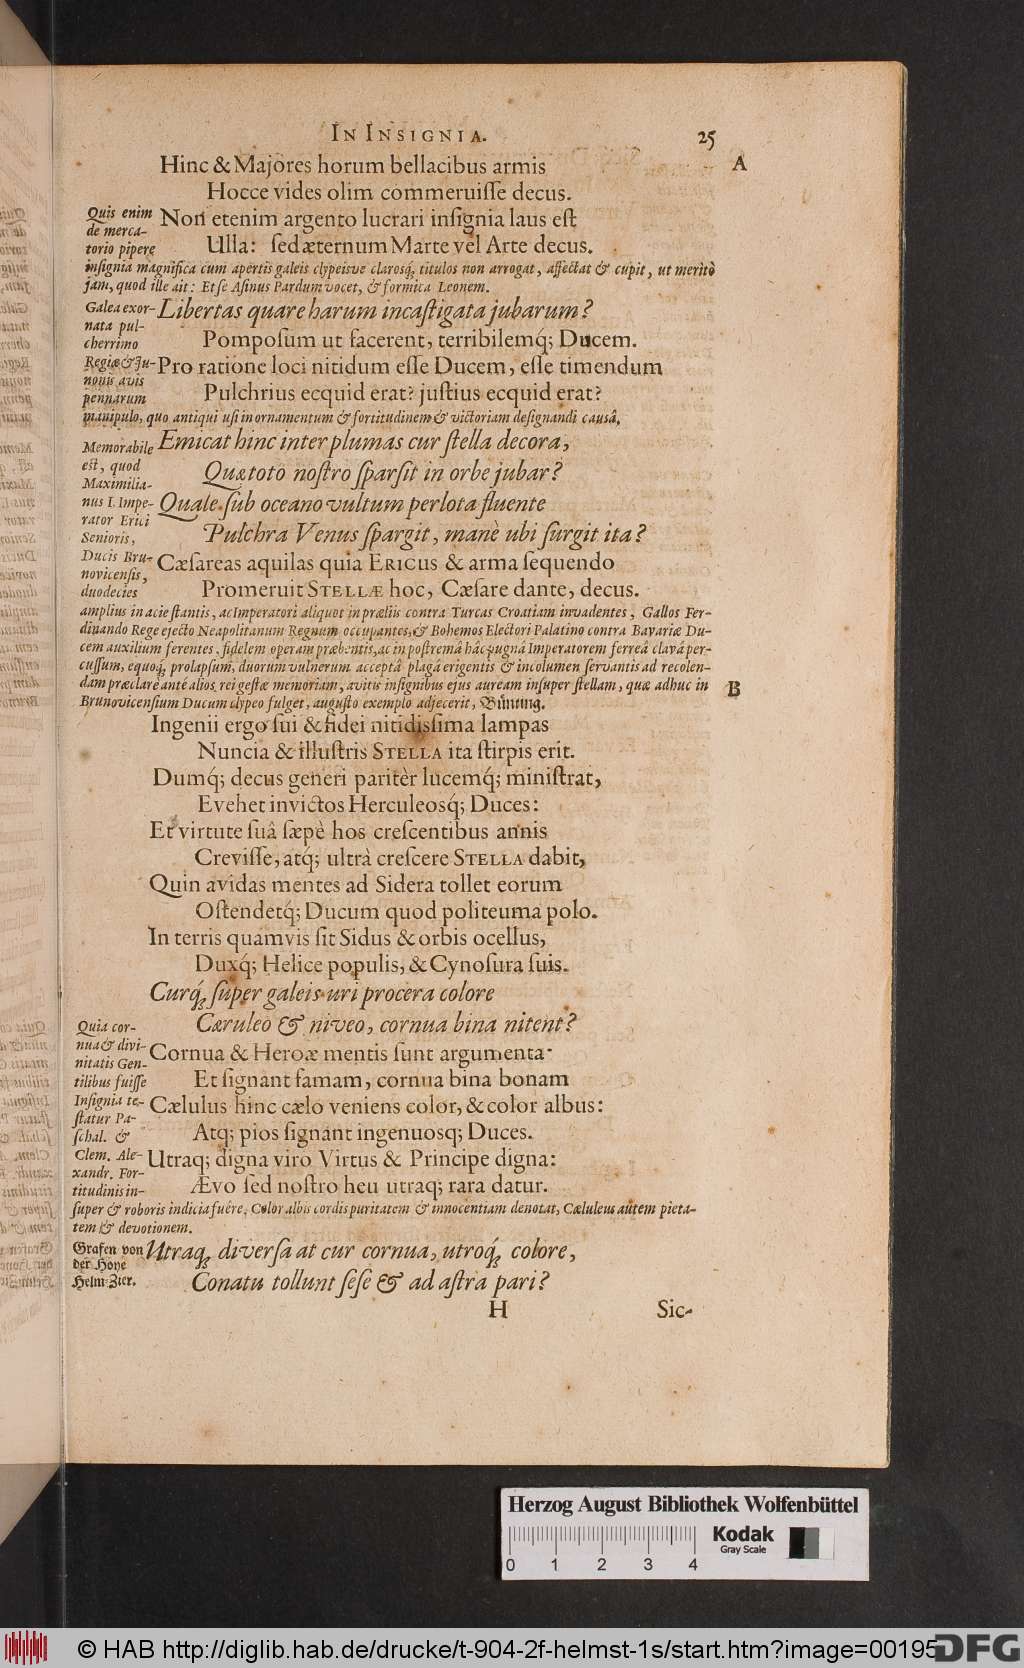 IN INSIGNIA. 25
Hinc & Majores horum bellacibus armis A
Hocce vides olim commeruiſſe decus.
Quis enim
de merca-
torio pipere
Non etenim argento lucrari inſignia laus eſt
Ulla: ſed æternum Marte vel Arte decus.
inſignia magnifica cum apertis galeis clypeisve claroſq́, titulos non arrogat, affectat & cupit, ut meritò
jam, quod ille ait: Et ſe Aſinus Pardum vocet, & formica Leonem.
Galea exor-
nata pul-
cherrimo
Regiæ & Ju-
nonis avis
pennarum
Libertas quare harum incaſtigata jubarum?
Pompoſum ut facerent, terribilemq́; Ducem.
Pro ratione loci nitidum eſſe Ducem, eſſe timendum
Pulchrius ecquid erat? juſtius ecquid erat?
manipulo, quo antiqui uſi in ornamentum & fortitudinem & victoriam deſignandi cauſâ.
Memorabile
eſt, quod
Maximilia-
nus I. Impe-
rator Erici
Senioris,
Ducis Bru-
novicenſis,
duodecies
Emicat hinc inter plumas cur ſtella decora,
Quæ toto noſtro ſparſit in orbe jubar?
Quale ſub oceano vultum perlota fluente
Pulchra Venus ſpargit, manè ubi ſurgit ita?
Cæſareas aquilas quia ERICUS & arma ſequendo
Promeruit STELLÆ hoc, Cæſare dante, decus.
amplius in acie ſtantis, ac Imperatori aliquot in præliis contra Turcas Croatiam invadentes, Gallos Fer-
dinando Rege ejecto Neapolitanum Regnum occupantes, & Bohemos Electori Palatino contra Bavariæ Du-
cem auxilium ferentes, fidelem operam præbentis, ac in poſtremâ hâc pugnâ Imperatorem ferreâ clavâ per-
cuſſum, equoq́, prolapſum, duorum vulnerum acceptâ plagâ erigentis & incolumen ſervantis ad recolen-
dam præclarè antè alios rei geſtæ memoriam, avitis inſignibus ejus auream inſuper ſtellam, quæ adhuc in B
Brunovicenſium Ducum clypeo fulget, auguſto exemplo adjecerit, Bünting.
Ingenii ergo ſui & fidei nitidiſsima lampas
Nuncia & illuſtris STELLA ita ſtirpis erit.
Dumq́; decus generi paritèr lucemq́; miniſtrat,
Evehet invictos Herculeosq́; Duces:
Et virtute ſuâ ſæpè hos creſcentibus annis
Creviſſe, atq́; ultrà creſcere STELLA dabit,
Quin avidas mentes ad Sidera tollet eorum
Oſtendetq́; Ducum quod politeuma polo.
In terris quamvis ſit Sidus & orbis ocellus,
Duxq́; Helice populis, & Cynoſura ſuis.
Curq́, ſuper galeis uri procera colore
Cæruleo & niveo, cornua bina nitent?
Quia cor-
nua & divi-
nitatis Gen-
tilibus fuiſſe
Inſignia te-
ſtatur Pa-
ſchal. &
Clem. Ale-
xandr. For-
titudinis in-
Cornua & Heroæ mentis ſunt argumenta
Et ſignant famam, cornua bina bonam
Cælulus hinc cælo veniens color, & color albus:
Atq; pios ſignant ingenuosq; Duces.
Utraq; digna viro Virtus & Principe digna:
Ævo ſed noſtro heu utraq; rara datur.
ſuper & roboris indicia fuêre, Color albis cordis puritatem & innocentiam denotat, Cæluleus autem pieta-
tem & devotionem.
Grafen von
der Hoye
Helm-Zier.
Utraq, diverſa at cur cornua, utroq́, colore,
Conatu tollunt ſeſe & ad aſtra pari?
H Sic-
Herzog August Bibliothek Wolfenbüttel
Kodak
Gray Scale
0 1 2 3 4
© HAB http://diglib.hab.de/drucke/t-904-2f-helmst-1s/start.htm?image=00195
DFG